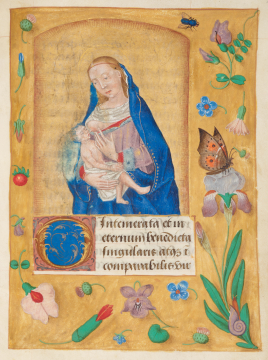 Intemerata et in
eternum benedicta
singularis atqꝫ i
comparabilis vir